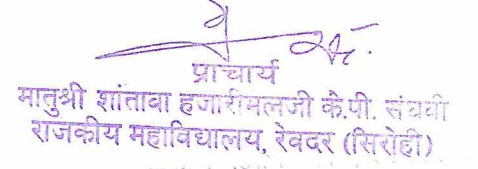 प्राचार्य
मातुश्री शांतावा हजारीमलजी के.पी. संघवी
राजकीय महाविद्यालय, रेवदर (सिरोही)